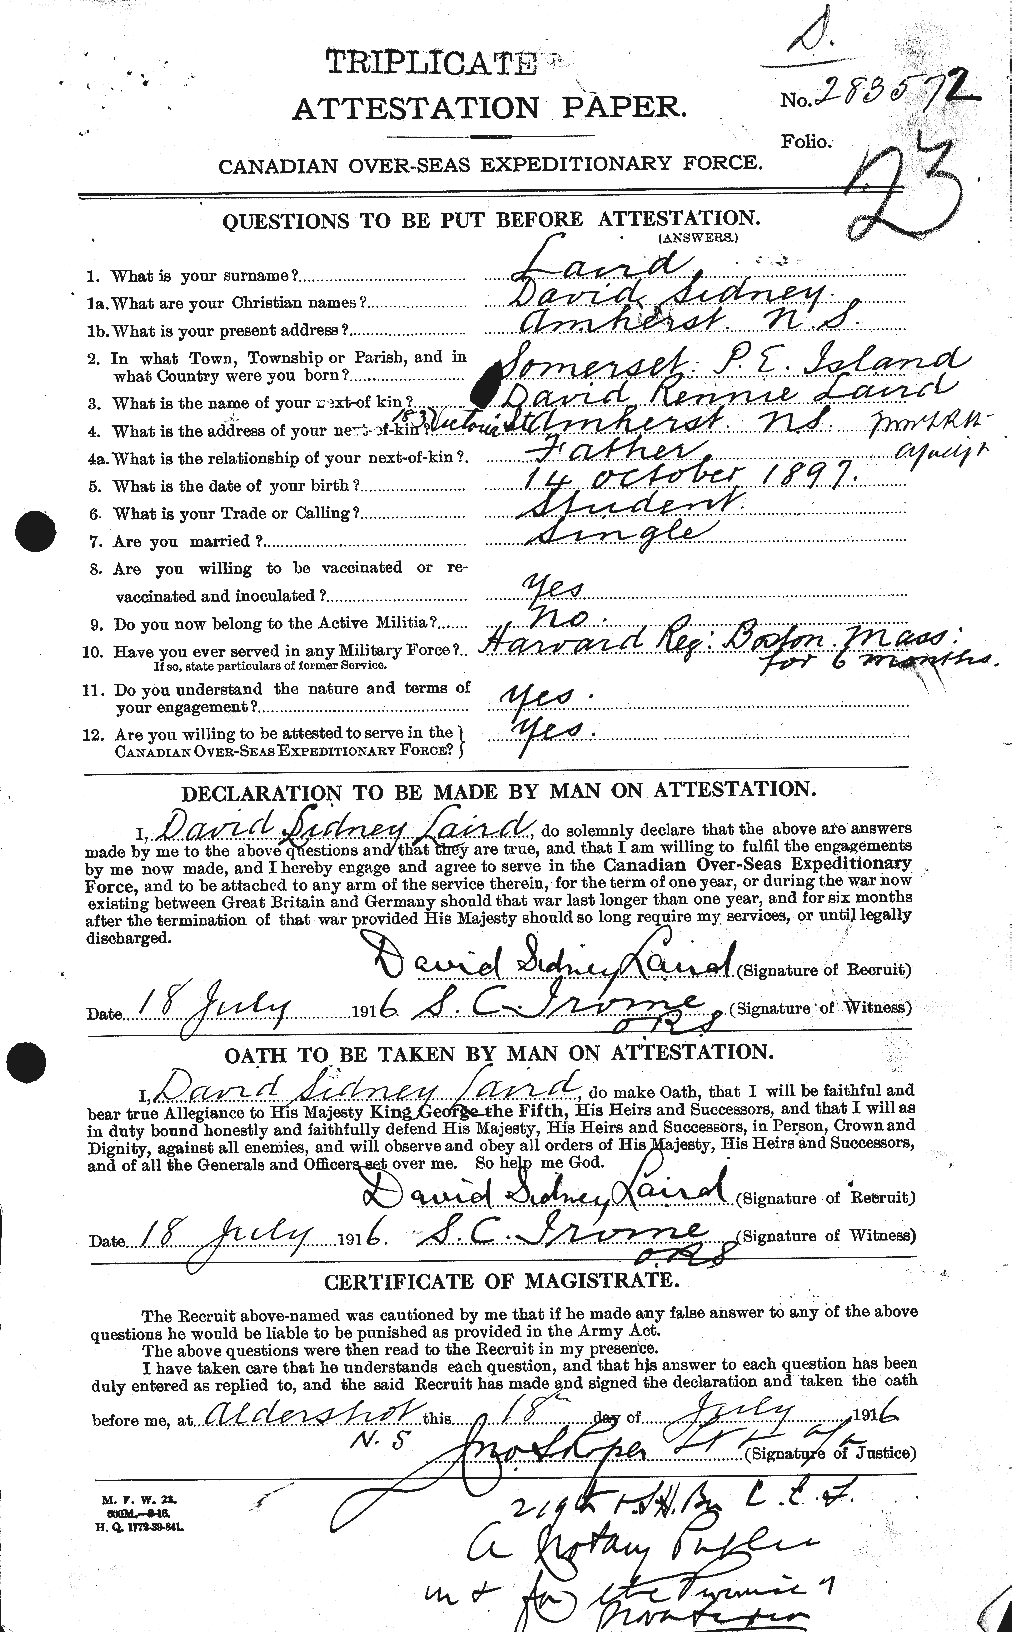 D.
TRIPLICATE
ATTESTATION PAPER.
No. 283572
Folio.
23
CANADIAN OVER-SEAS EXPEDITIONARY FORCE.
QUESTIONS TO BE PUT BEFORE ATTESTATION.
(ANSWERS.)
1. What is your surname? Laird
1a. What are your Christian names? David Sidney.
1b. What is your present address? Amherst. N.S.
2. In what Town, Township or Parish, and in
what Country were you born? Somerset. P.E. Island
3. What is the name of your next-of kin? David Rennie Laird
4. What is the address of your next-of-kin? 183 Victoria St Amherst. N.S.
4a. What is the relationship of your next-of-kin? Father
5. What is the date of your birth? 14 October 1897.
6. What is your Trade or Calling? Student.
7. Are you married? Single
8. Are you willing to be vaccinated or re-
vaccinated and inoculated? Yes
9. Do you now belong to the Active Militia? No.
10. Have you ever served in any Military Force? Harvard Reg: Boston. Mass:
If so, state particulars of former Service. for 6 months.
11. Do you understand the nature and terms of
your engagement? Yes.
12. Are you willing to be attested to serve in the
CANADIAN OVER-SEAS EXPEDITIONARY FORCE? Yes.
DECLARATION TO BE MADE BY MAN ON ATTESTATION.
I, David Sidney Laird, do solemnly declare that the above are answers
made by me to the above questions and that they are true, and that I am willing to fulfil the engagements
by me now made, and I hereby engage and agree to serve in the Canadian Over-Seas Expeditionary
Force, and to be attached to any arm of the service therein, for the term of one year, or during the war now
existing between Great Britain and Germany should that war last longer than one year, and for six months
after the termination of that war provided His Majesty should so long require my services, or until legally
discharged.
David Sidney Laird (Signature of Recruit)
Date 18 July 1916 S. C. Irome (Signature of Witness)
ORS
OATH TO BE TAKEN BY MAN ON ATTESTATION.
I, David Sidney Laird, do make Oath, that I will be faithful and
bear true Allegiance to His Majesty King George the Fifth, His Heirs and Successors, and that I will as
in duty bound honestly and faithfully defend His Majesty, His Heirs and Successors, in Person, Crown and
Dignity, against all enemies, and will observe and obey all orders of His Majesty, His Heirs and Successors,
and of all the Generals and Officers set over me. So help me God.
David Sidney Laird (Signature of Recruit)
Date 18 July 1916. S. C. Irome (Signature of Witness)
ORS
CERTIFICATE OF MAGISTRATE.
The Recruit above-named was cautioned by me that if he made any false answer to any of the above
questions he would be liable to be punished as provided in the Army Act.
The above questions were then read to the Recruit in my presence.
I have taken care that he understands each question, and that his answer to each question has been
duly entered as replied to, and the said Recruit has made and signed the declaration and taken the oath
before me, at Aldershot this 18th day of July 1916
N.S
Jno S Roper Lt (Signature of Justice)
M. F. W. 23.
600M.—2-16.
H. Q. 1772-39-841.
219th O.S.H. Bn C.E.F.
A Notary Public
in & for the Province of
Nova Scotia